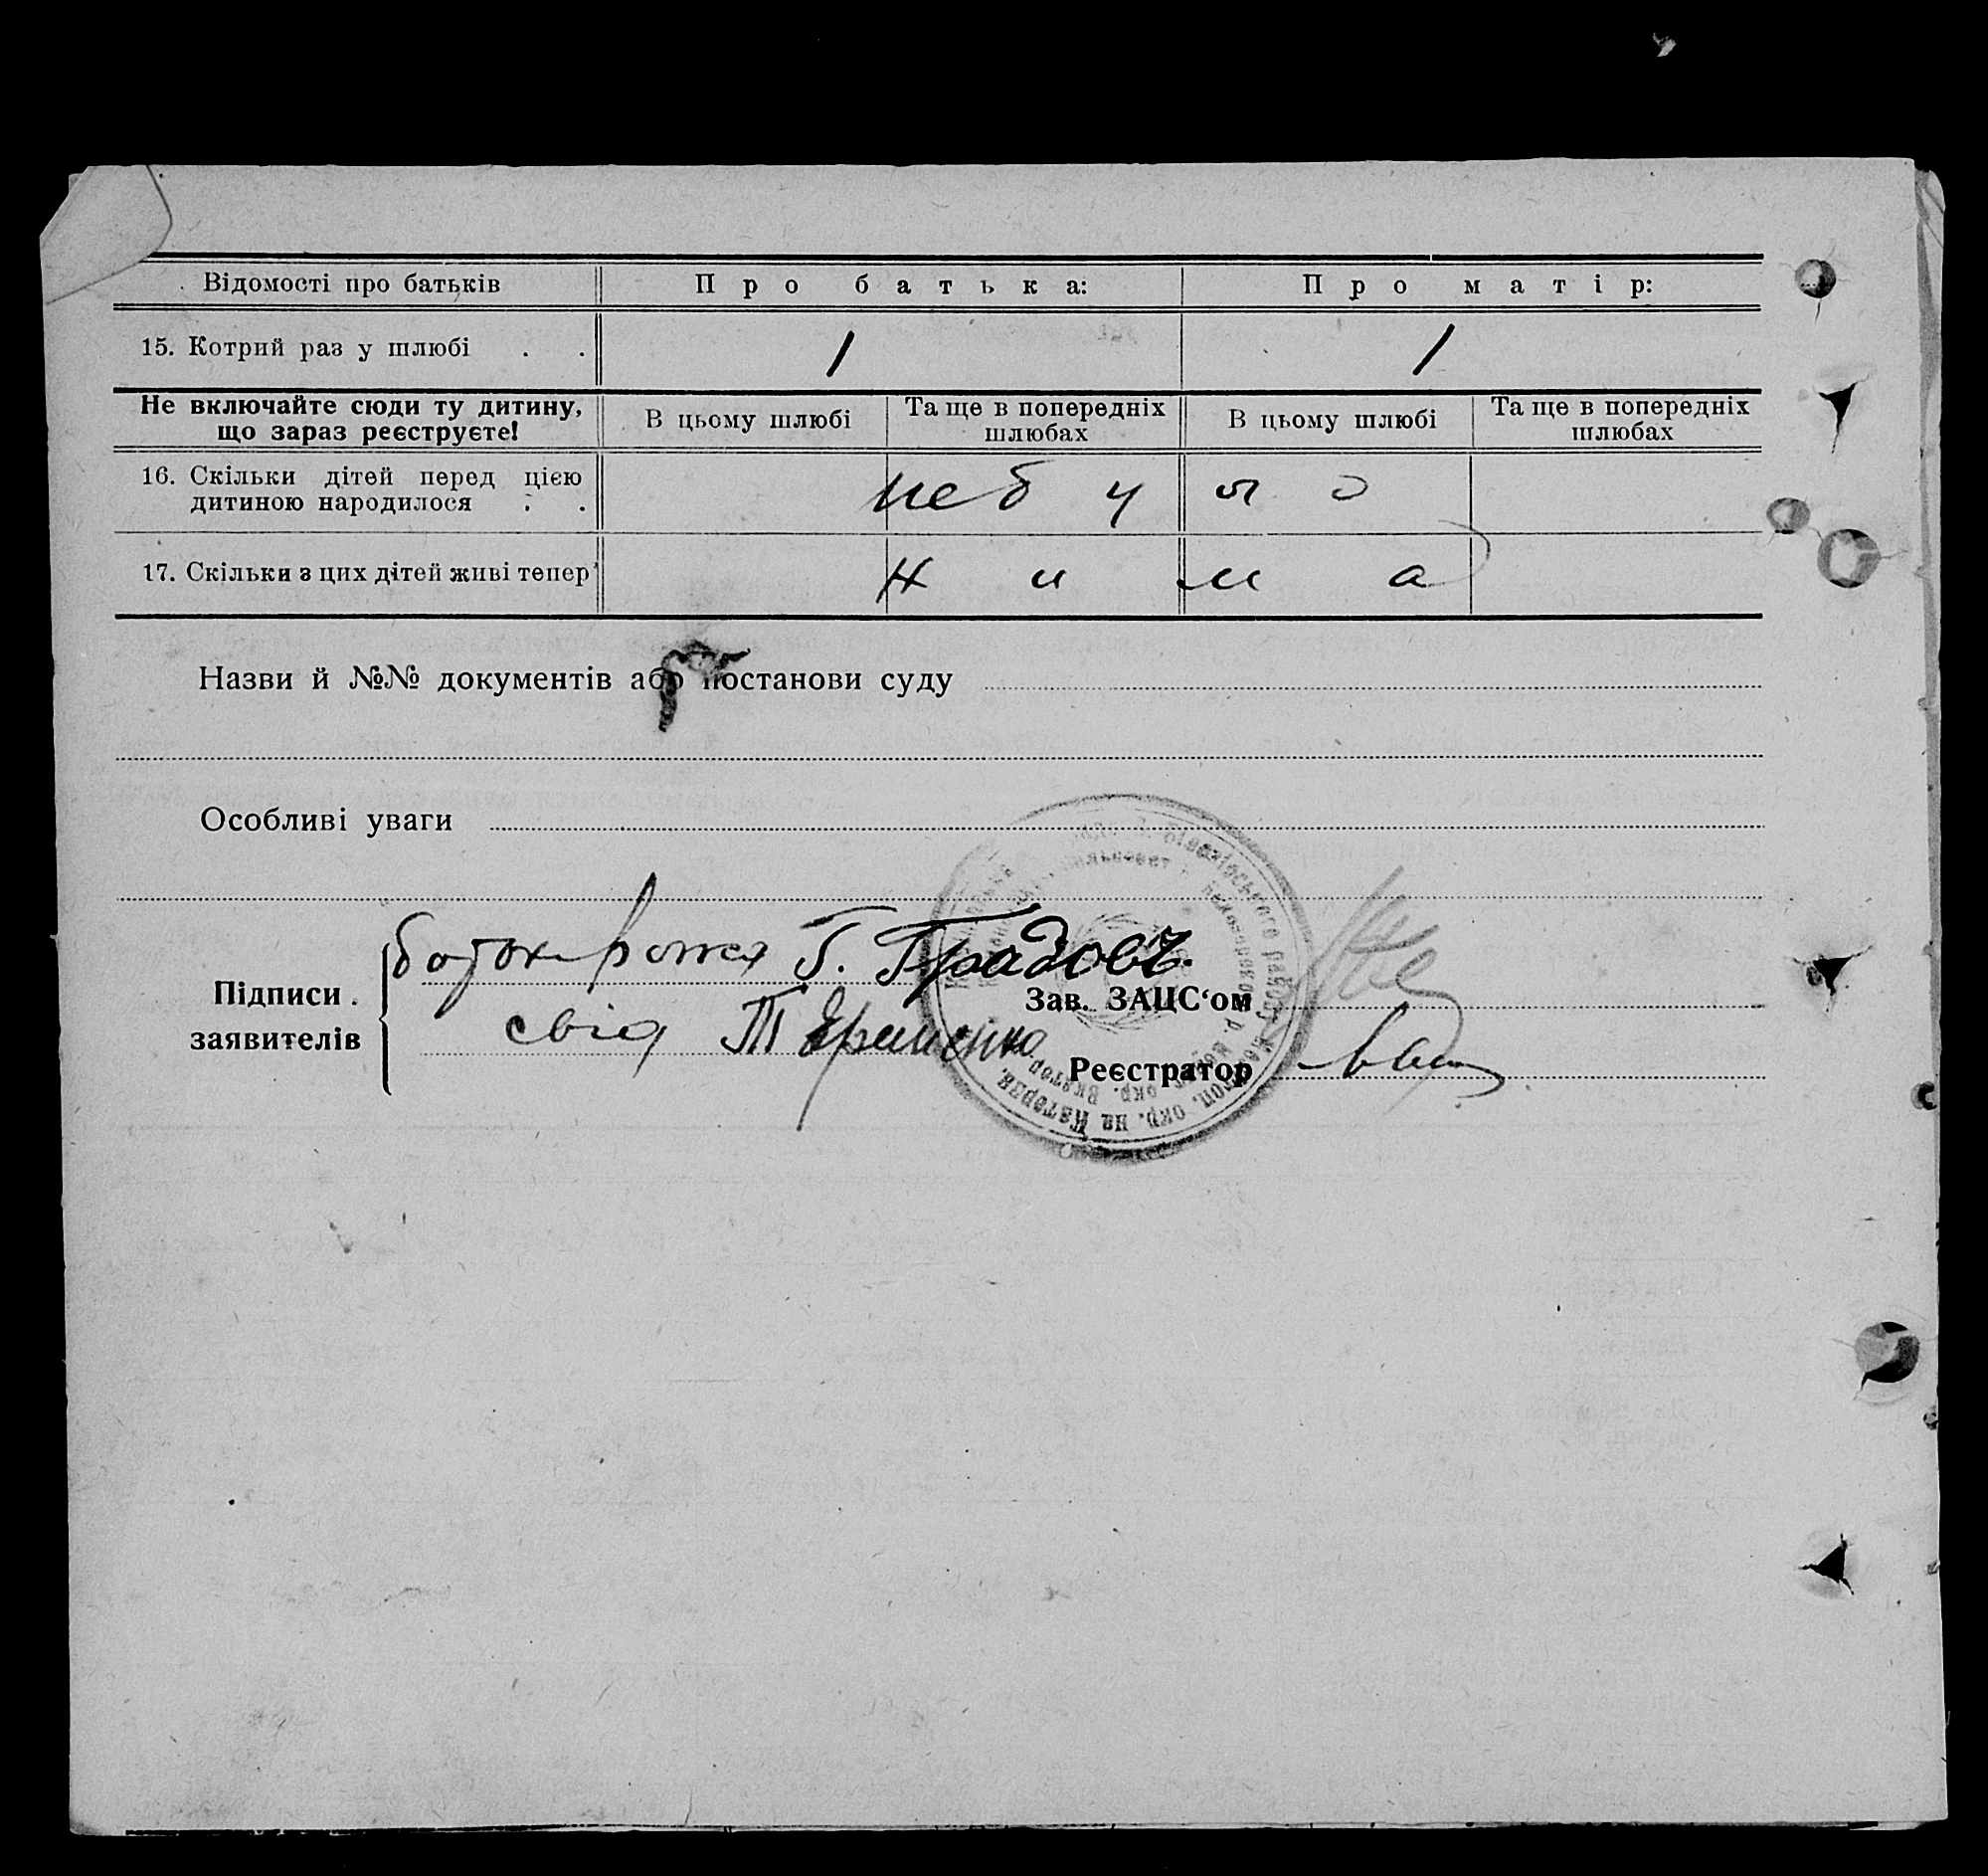 Відомості про батьків Про батька: Про матір:
15. Котрий раз у шлюбі . . 1 1
Не включайте сюди ту дитину, що зараз реєструєте! В цьому шлюбі Та ще в попередніх шлюбах В цьому шлюбі Та ще в попередніх шлюбах
16. Скільки дітей перед цією
дитиною народилося . . не було
17. Скільки з цих дітей живі тепер нима
Назви й №№ документів або постанови суду
Особливі уваги
Підписи
заявителів
Г. Градовъ.
Зав. ЗАЦС‘ом
свід Т Яременко
Реєстратор